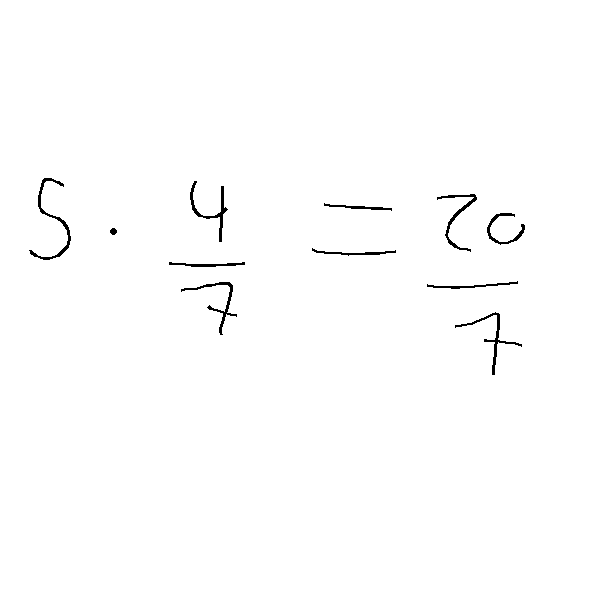 5 · 4/7 = 20/7